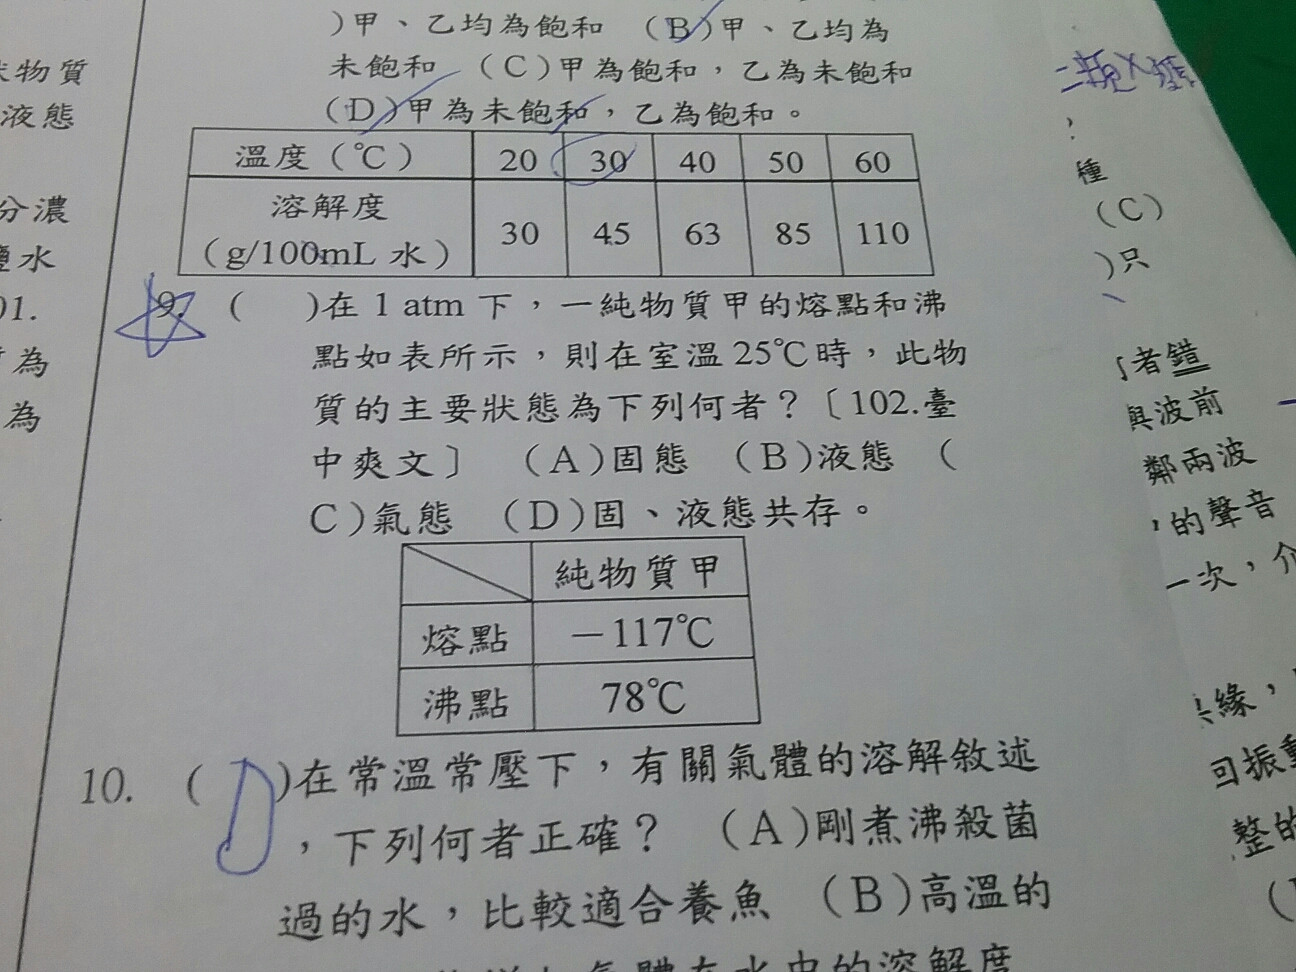 )甲、乙均為飽和 (B)甲、乙均為
未飽和 (C)甲為飽和，乙為未飽和
(D)甲為未飽和，乙為飽和。
溫度(℃) 20 30 40 50 60
溶解度
(g/100mL 水) 30 45 63 85 110
9. ( )在 1 atm 下，一純物質甲的熔點和沸
點如表所示，則在室溫 25℃時，此物
質的主要狀態為下列何者？〔102.臺
中爽文〕 (A)固態 (B)液態 (
C)氣態 (D)固、液態共存。
純物質甲
熔點 －117℃
沸點 78℃
10. (D)在常溫常壓下，有關氣體的溶解敘述
，下列何者正確？ (A)剛煮沸殺菌
過的水，比較適合養魚 (B)高溫的
氣體在水中的溶解度
物質
液態
分濃
鹽水
01.
為
為
種
(C)
)只
者錯
與波前
鄰兩波
，的聲音
一次，介
緣，
回振動
整的
(